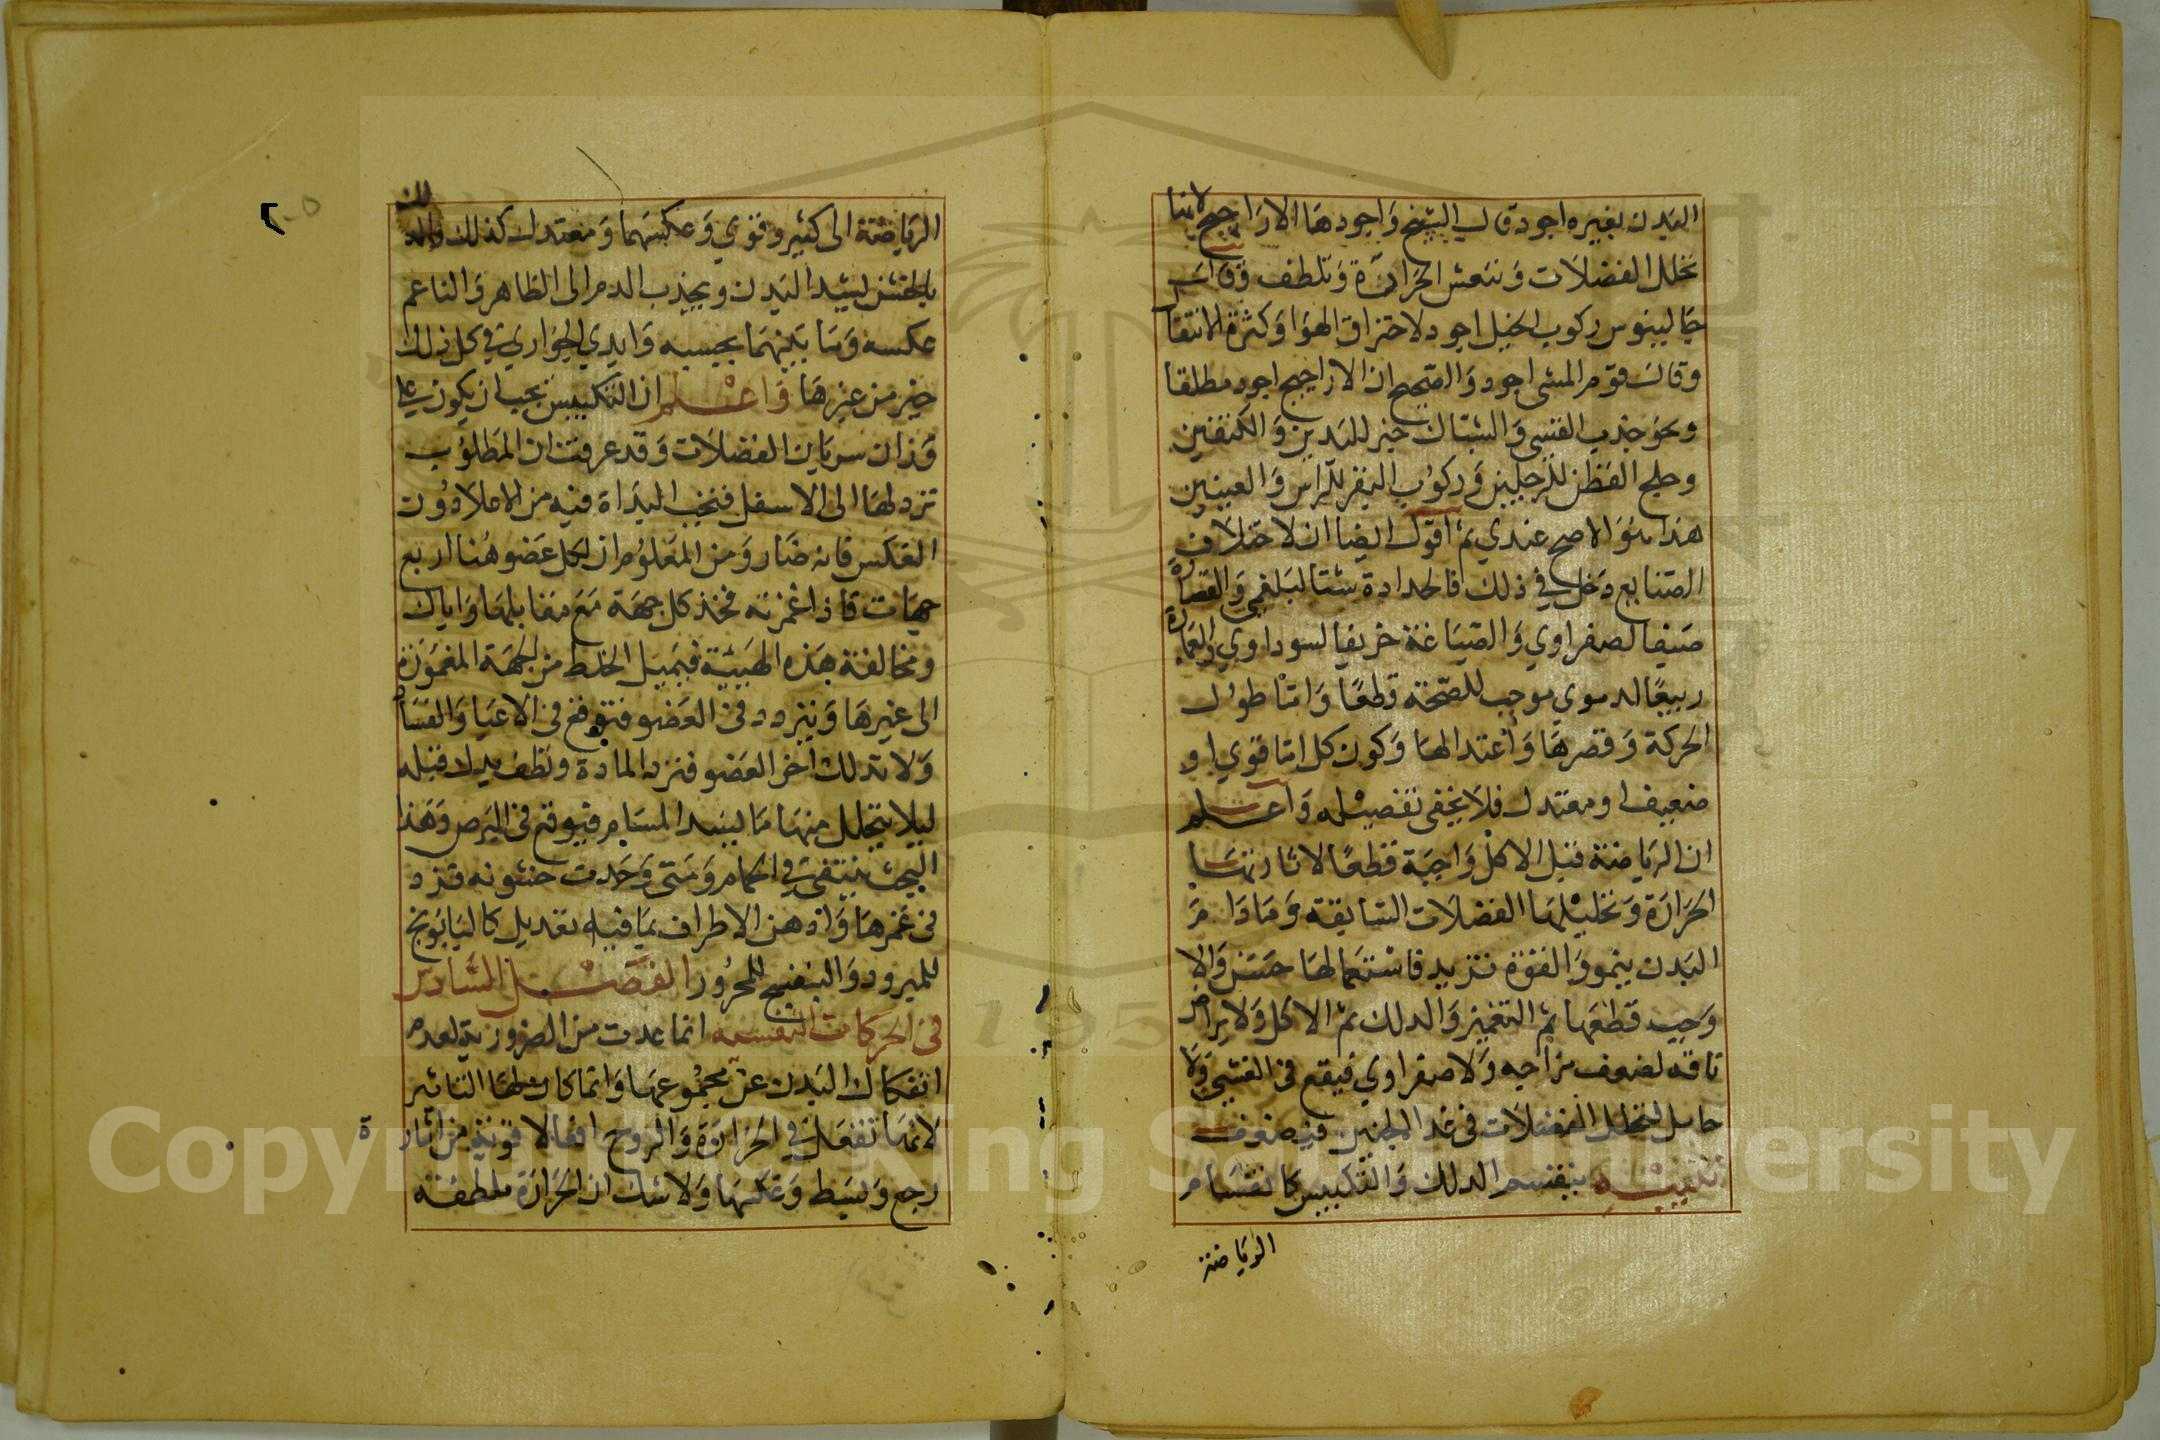 البدن بغيره اجود قال الشيخ واجودها الاراجيح لانها
تحلل الفضلات وتنعش الحرارة وتلطف وقال
جالينوس ركوب الخيل اجود لاختراق الهوا وكثرة الانتقا
وقال قوم المشي اجود والصحيح ان الاراجيح اجود مطلقا
ونحو جذب القسي والشباك خير لليدين والكتفين
وحلج القطن للرجلين وركوب البقر للراس والعينين
هذا هو الاصح عندي ثم اقول ايضا ان لاختلاف
الصنايع دخل في ذلك فالحدادة شتا لبلغمي والقصارة
صيفا لصفراوي والصياغة خريفا لسوداوي والعمارة
ربيعا لدموي موجب للصحة قطعا واما طول
الحركة وقصرها واعتدالها وكون كل اما قوي او
ضعيف او معتدل فلا يخفى تفصيله واعلم
ان الرياضة قبل الاكل واجبة قطعا لاثارتها
الحرارة وتحليلها الفضلات السابقة وما دام
البدن ينمو والقوة تزيد فاستعمالها حسن والا
وجب قطعها ثم التغميز والدلك ثم الاكل ولا يراض
ناقه لضعف مزاجه ولا صفراوي فيقع في الغشي ولا
حامل لتحلل الفضلات في غذا الجنين فيضعف
تنبيه ينقسم الدلك والتكبيس كانقسام
الرياضة
الرياضة الى كثير وقوي وعكسهما ومعتدل كذلك والدلك
بالخشن يشد البدن ويجذب الدم الى الظاهر والناعم
عكسه وما بينهما بحسبه وايدي الجواري في كل ذلك
خير من غيرها واعلم ان التكبيس يجب ان يكون على
وزان سريان الفضلات وقد عرفت ان المطلوب
نزولها الى الاسفل فتجب البداة فيه من الاعلا دون
العكس فانه ضار ومن المعلوم ان لكل عضو هنا اربع
جهات فاذا غمزته فخذ كل جهة مع مقابلها واياك
ومخالفة هذه الهيئة فيميل الخلط من الجهة المغموزة
الى غيرها ويتردد في العضو فتوقع في الاعيا والفساد
ولا تدلك اخر العضو فتزد المادة ونظف يديك قبله
ليلا يتحلل منها ما يسد المسام فيوقع في البرص وهذا
البحث ينتفي في الحمام ومتى وجدت خشونة فزد
في غمزها وادهن الاطراف بما فيه تعديل كالبابونج
للمبرود والبنفسج للمحرور الفصل السادس
في الحركات النفسية انما عدت من الضرورية لعدم
انفكاك البدن عن مجموعها وانما كان لها التاثير
لانها تفعل في الحرارة والروح افعالا قوية من اثارة
وجمع وبسط وعكسها ولا شك ان الحرارة ملطفة
Copyright © King Saud University
1957